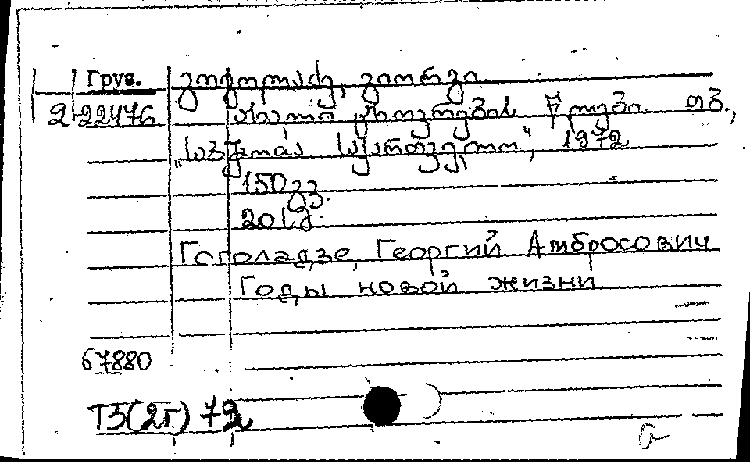 Груз. გოგოლაძე, გიორგი
2 22476 ახალი ცხოვრების წლები. თბ.,
„საბჭოთა საქართველო", 1972
150 გვ.
20 სმ.
Гоголадзе, Георгий Амбросович
Годы новой жизни
67880
Т3(2Г)72